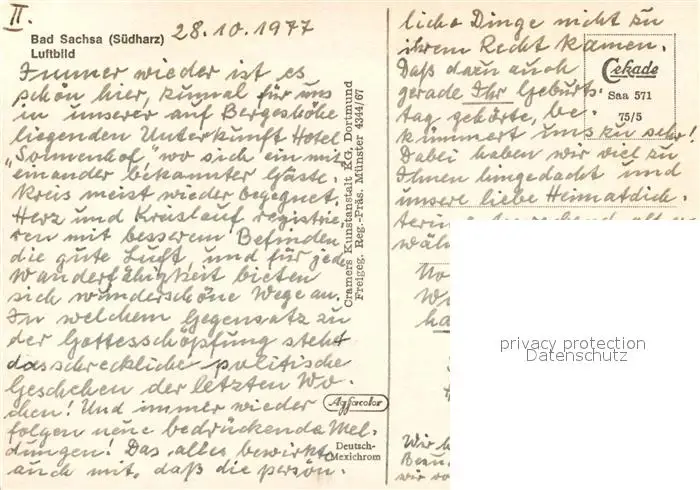 II
28.10.1977
Bad Sachsa (Südharz)
Luftbild
Immer wieder ist es
schön hier, zumal für uns
in unserer auf Bergeshöhe
liegenden Unterkunft Hotel
„Sonnenhof," wo sich ein mit
einander bekannter Gäste-
kreis meist wieder begegnet.
Herz und Kreislauf registrie-
ren mit besserem Befinden
die gute Luft, und für jede
Wanderfähigkeit bieten
sich wunderschöne Wege an.
In welchem Gegensatz zu
der Gottesschöpfung steht
das schreckliche politische
Geschehen der letzten Wo-
chen! Und immer wieder
folgen neue bedrückende Mel-
dungen! Das alles bewirkte
auch mit, daß die persön-
Cramers Kunstanstalt KG, Dortmund
Freigeg. Reg.-Präs. Münster 4344/67
Agfacolor
Deutsch-
Mexichrom
liche Dinge nicht zu
ihrem Recht kamen.
Daß dazu auch
gerade Ihr Geburts-
tag gehörte, be-
kümmert uns zu sehr!
Dabei haben wir viel zu
Ihnen hingedacht und
unsere liebe Heimatdich-
Cekade
Saa 571
75/5
privacy protection
Datenschutz